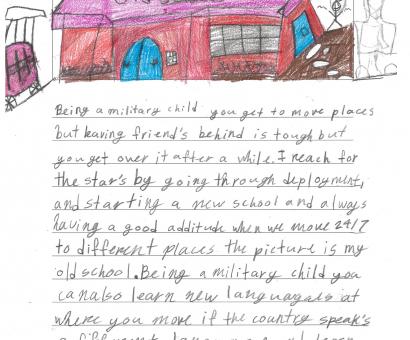 Being a military child you get to move places
but leaving friend's behind is tough but
you get over it after a while. I reach for
the star's by going through deployment,
and starting a new school and always
having a good additude when we move 24/7
to different places the picture is my
old school. Being a military child you
can also learn new languagels at
where you move if the country speak's
a different language